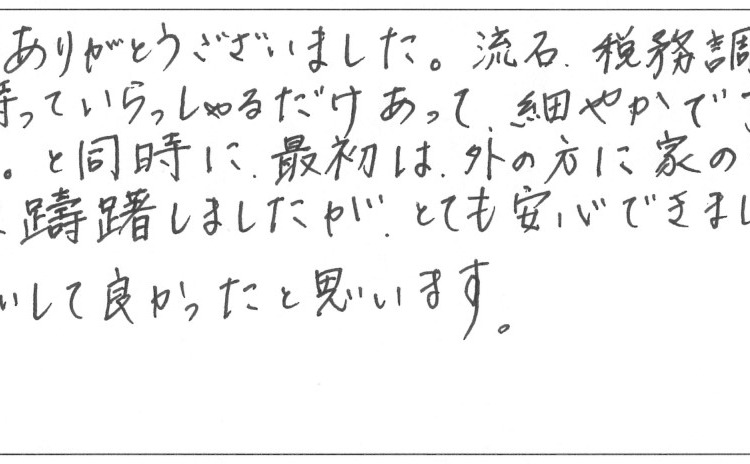 ありがとうございました。流石、税務調
持っていらっしゃるだけあって、細やかで
。と同時に、最初は、外の方に家の
躊躇しましたが、とても安心できまし
いして良かったと思います。